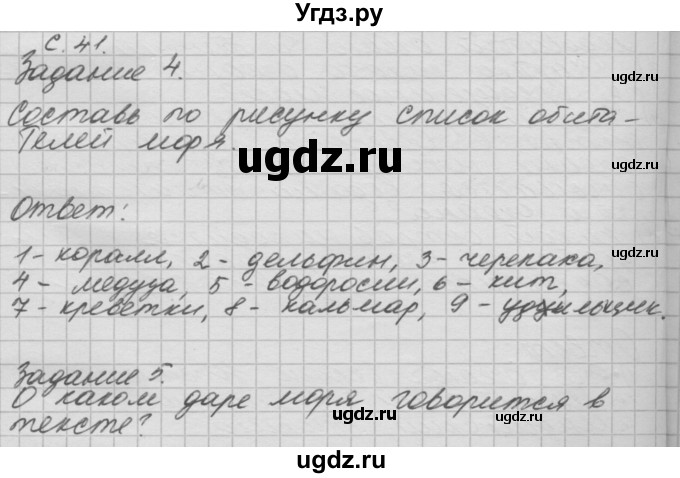 Угдз.ру
с. 41.
Задание 4.
ugdz.ru
Составь по рисунку список обита-
ugdz.ru
телей моря.
ugdz.ru
ugdz.ru
Ответ:
1 - коралл, 2 - дельфин, 3 - черепаха,
ugdz.ru
4 - медуза, 5 - водоросли, 6 - кит,
ugdz.ru
7 - креветки, 8 - кальмар, 9 - удильщик.
ugdz.ru
ugdz.ru
Задание 5.
О каком даре моря говорится в
ugdz.ru
тексте?
ugdz.ru
ugdz.ru